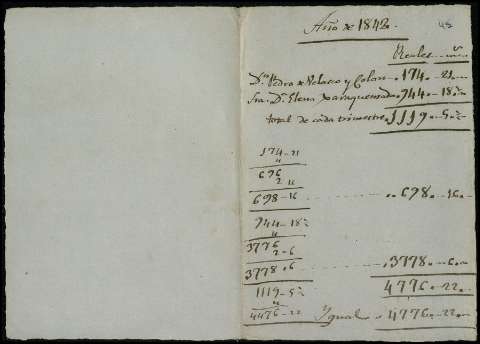 Año de 1842.
48
Reales mrs.
Dn. Pedro de Velasco y Colon. 174. 21.
Sra. Da. Elena 944. 18.
total de cada trimestre. 1119. 5.
174-21
4
696
2 16
698-16 698. 16.
944-18
4
3776
2-6
3778.6 3778. 6.
4776. 22.
1119-5
4
4476-22 Ygual 4776. 22.